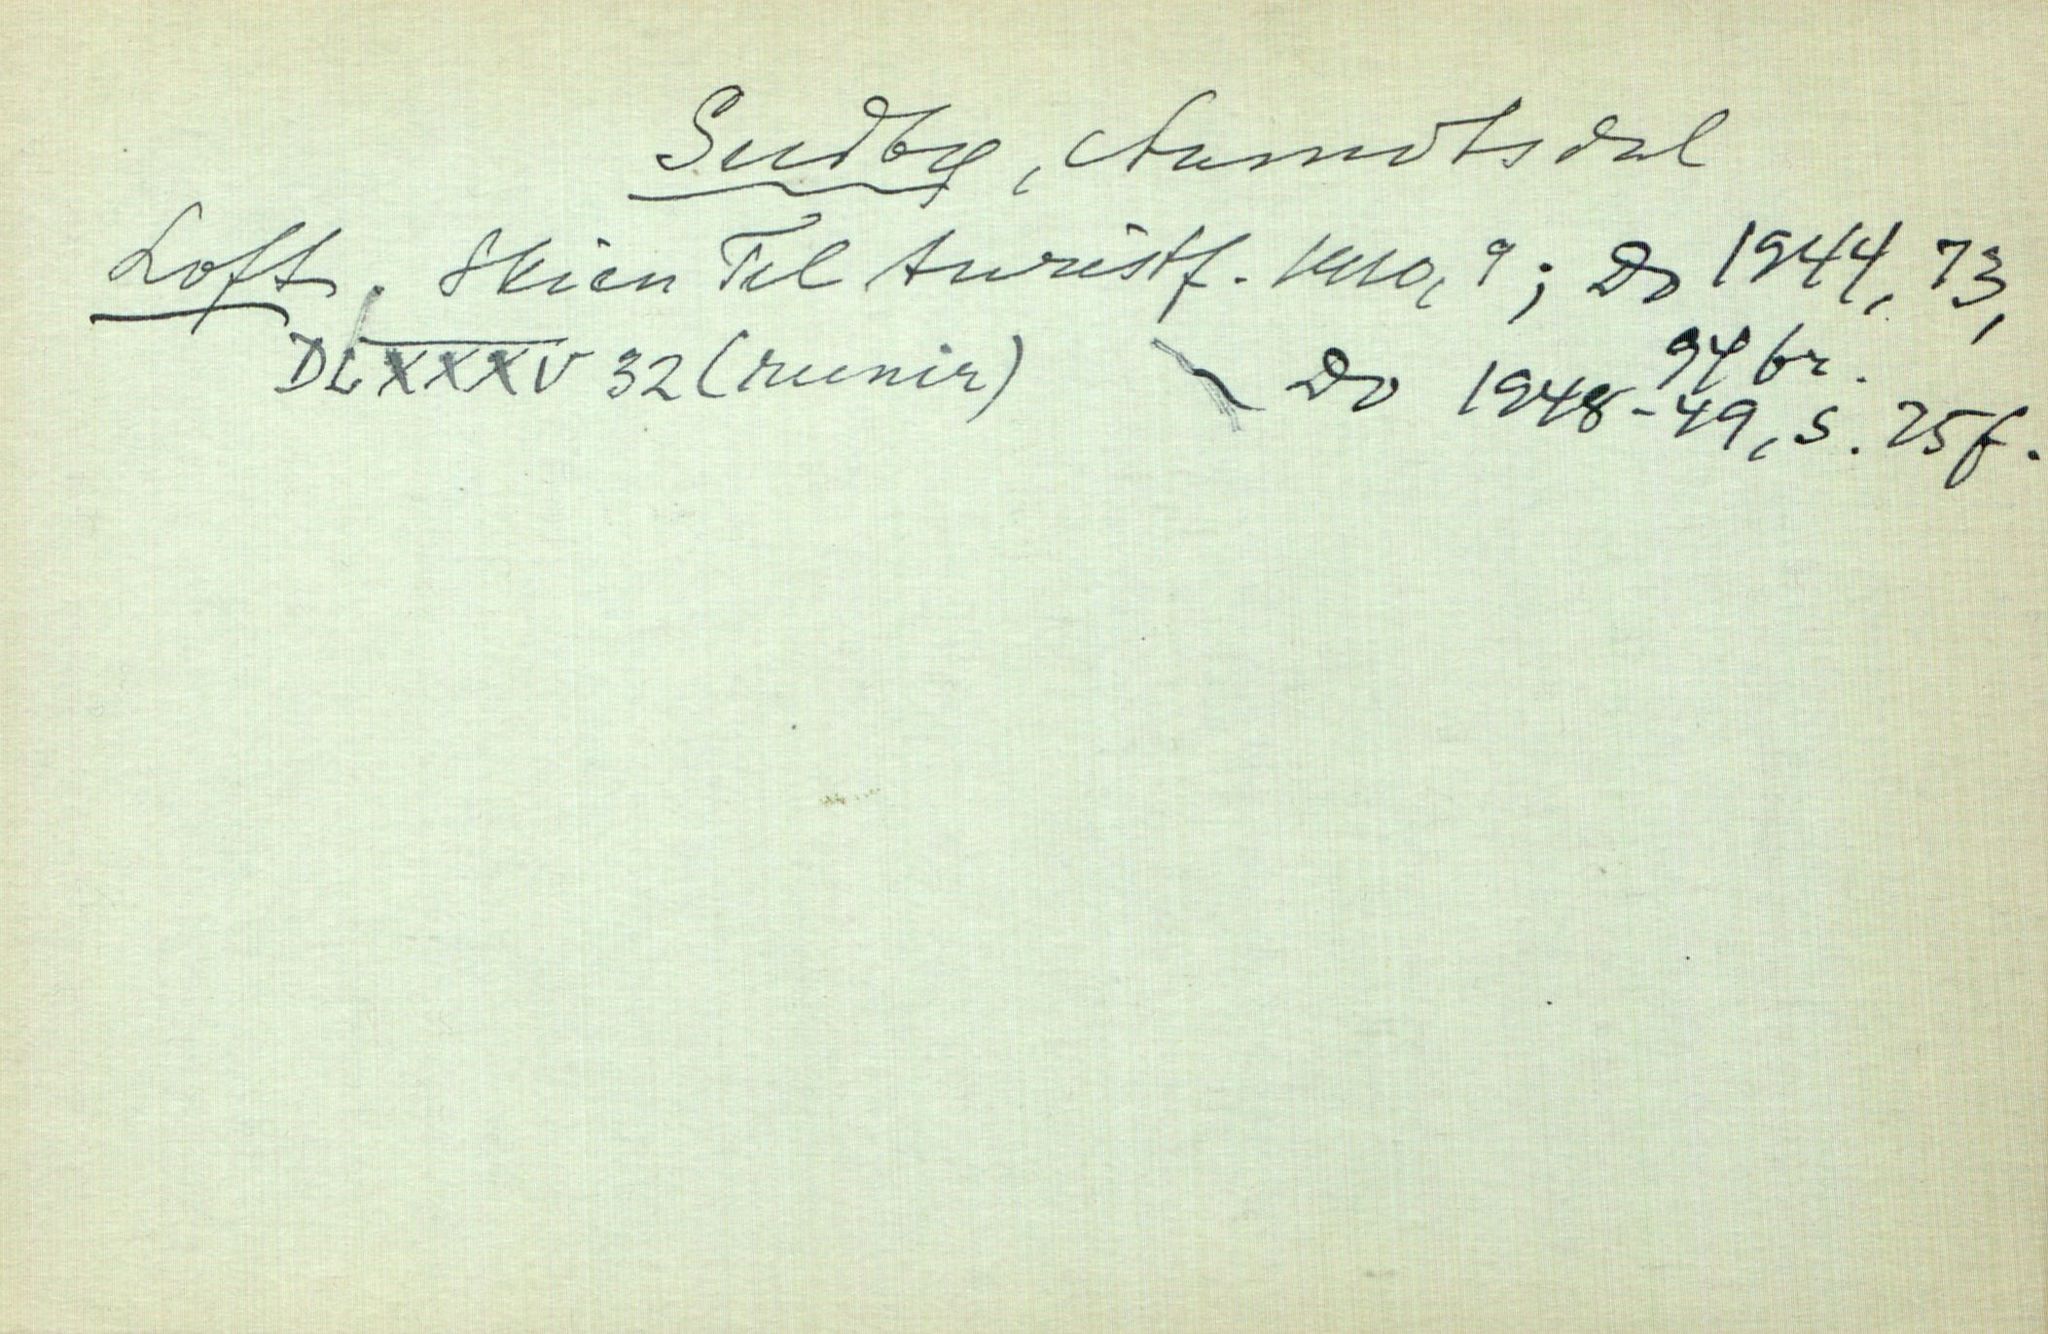 Sudbø, Aamotsdal
Loft. Skien Tel turistf. 1940, 9; Do 1944, 73,
94 br.
DLXXXV 32 (runir)
Do 1948-49, s. 25f.